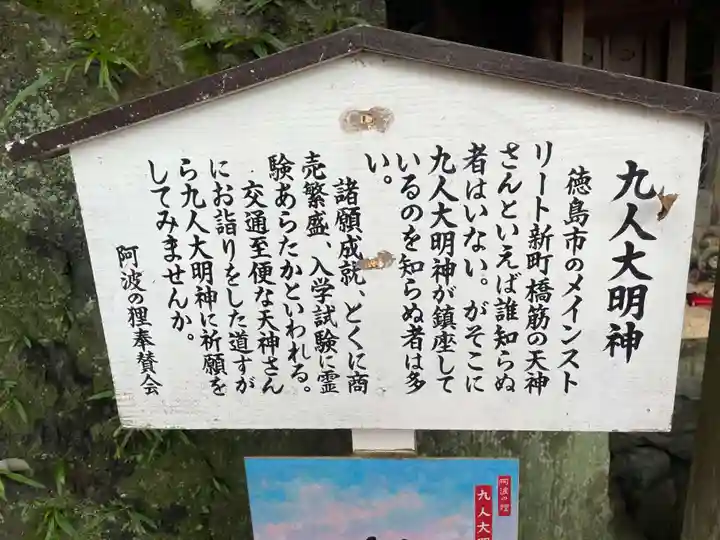 九人大明神
徳島市のメインスト
リート新町橋筋の天神
さんといえば誰知らぬ
者はいない。がそこに
九人大明神が鎮座して
いるのを知らぬ者は多
い。
諸願成就、とくに商
売繁盛、入学試験に霊
験あらたかといわれる。
交通至便な天神さん
にお詣りをした道すが
ら九人大明神に祈願を
してみませんか。
阿波の狸奉賛会
阿波の狸
九人大明